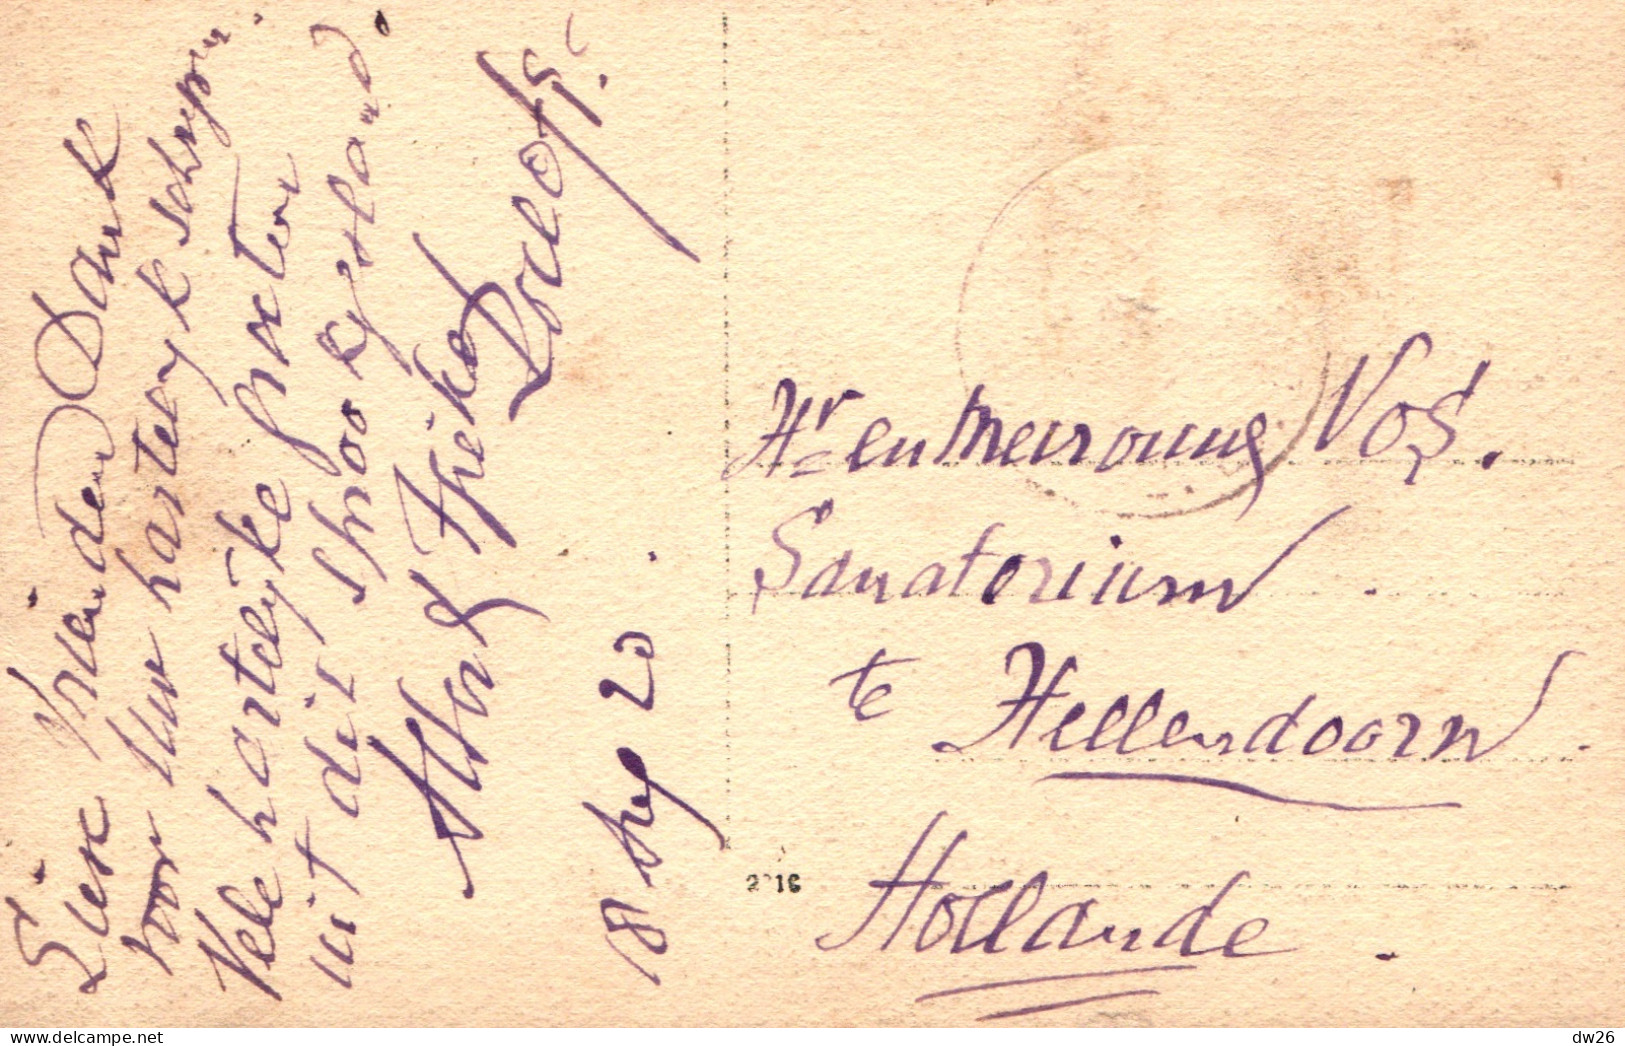 Lieve Vrienden Dank
voor Uw hartelyk schrijven.
Vele hartelyke groeten
uit dit sprookjesland.
Roelofs.
18 Sep 20
Hr en Mevrouw Vos.
Sanatorium
te Hellendoorn.
Hollande.
2216
delcampe.net
dw26